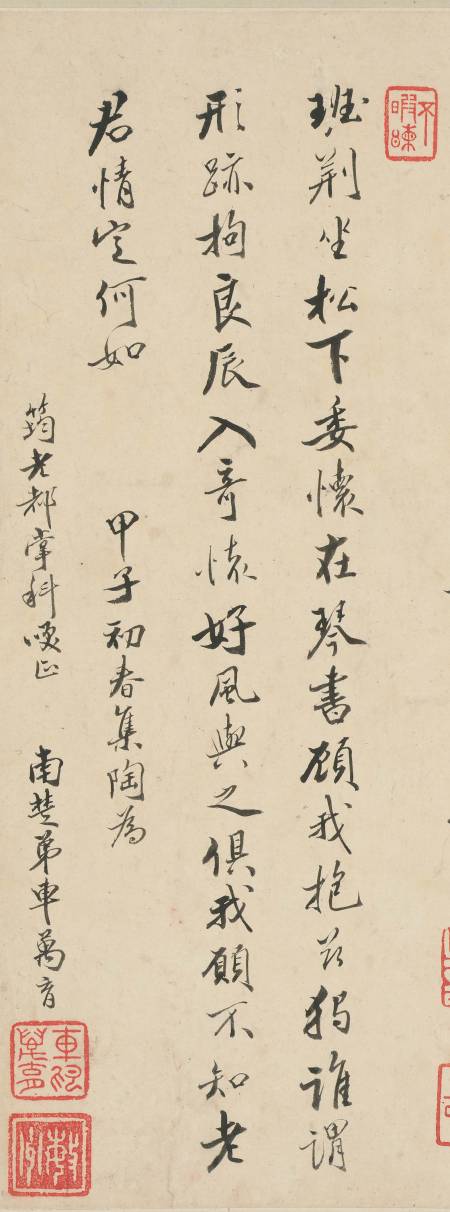 班荊坐松下委懷在琴書顧我抱茲獨誰謂
形跡拘良辰入奇懷好風與之俱我願不知老
君情定何如
甲子初春集陶為
筠老都掌科嘜正
南楚弟車萬育